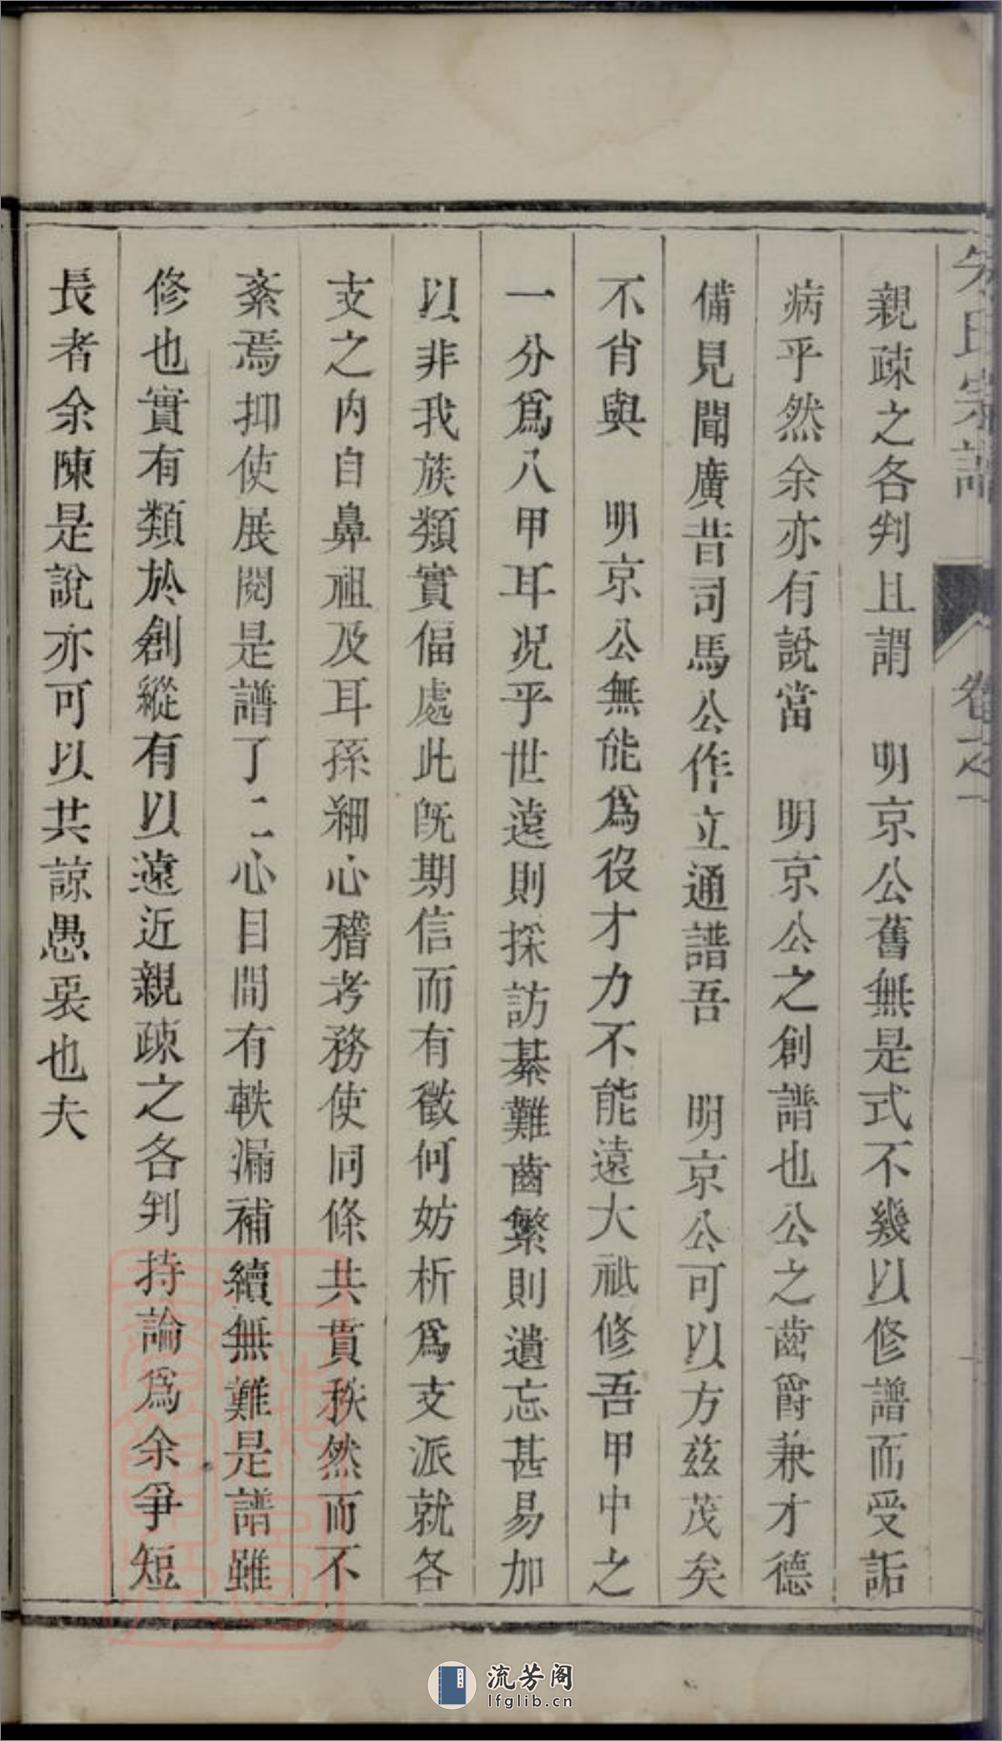 親疎之各判且謂　明京公舊無是式不幾以修譜而受詬
病乎然余亦有說當　明京公之創譜也公之齒爵兼才德
備見聞廣昔司馬公作立通譜吾　明京公可以方兹茂矣
不肖與　明京公無能爲役才力不能遠大祗修吾甲中之
一分爲八甲耳况乎世遠則採訪綦難齒繁則遺忘甚易加
以非我族類實偪處此旣期信而有徵何妨析爲支派就各
支之内自鼻祖及耳孫細心稽考務使同條共貫秩然而不
紊焉抑使展閱是譜了二心目間有軼漏補續無難是譜雖
修也實有類於創縱有以遠近親疎之各判持論爲余爭短
長者余陳是說亦可以共諒愚衷也夫
氏宗譜
卷之一
流芳阁
lfglib.cn